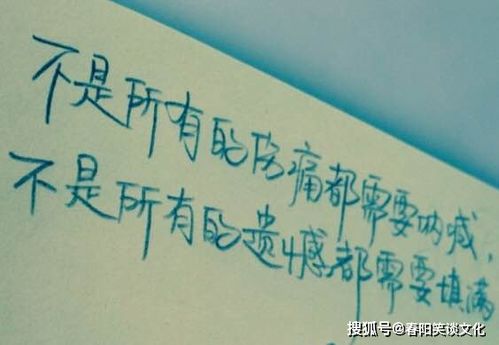 不是所有的伤痛都需要呐喊，
不是所有的遗憾都需要填满
搜狐号@春阳笑谈文化